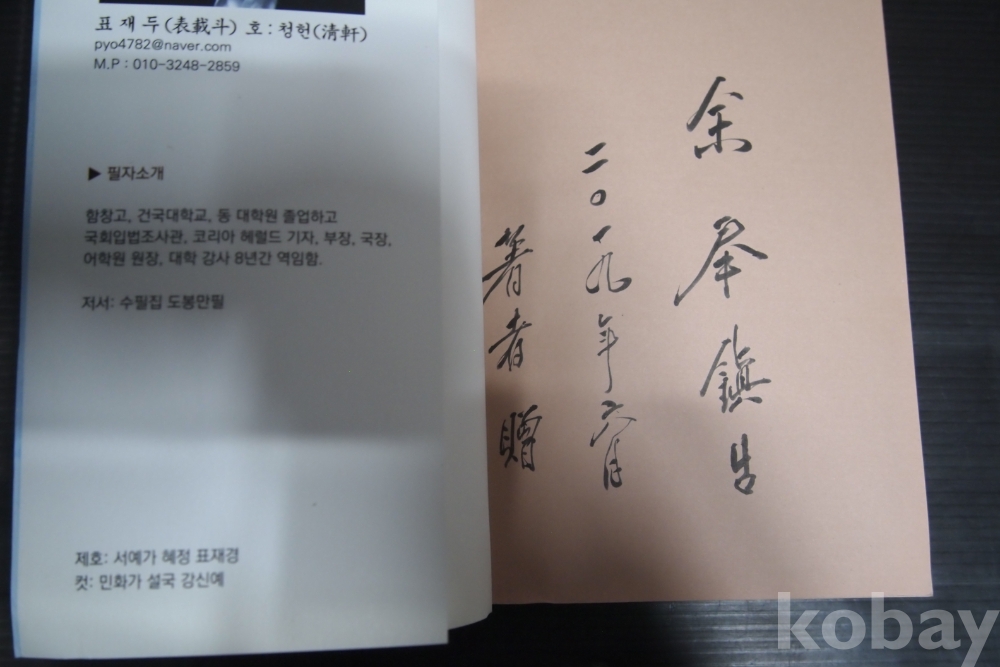 표재두(表載斗) 호:청헌(清軒)
pyo4782@naver.com
M.P : 010-3248-2859
▶ 필자소개
함창고, 건국대학교, 동 대학원 졸업하고
국회입법조사관, 코리아 헤럴드 기자, 부장, 국장,
어학원 원장, 대학 강사 8년간 역임함.
저서: 수필집 도봉만필
제호: 서예가 혜정 표재경
컷: 민화가 설국 강신예
余 奉 鎭
二〇一九年六月
著者 贈
kobay